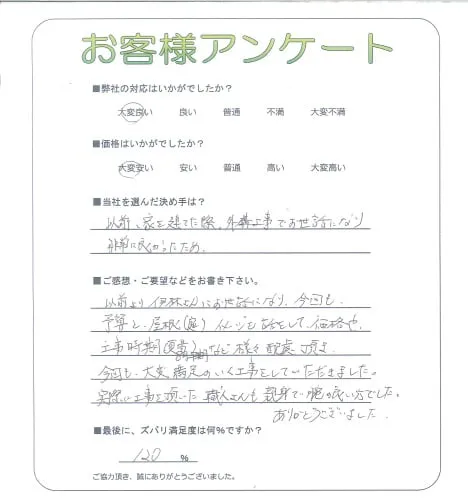 お客様アンケート
■弊社の対応はいかがでしたか？
大変良い 良い 普通 不満 大変不満
■価格はいかがでしたか？
大変安い 安い 普通 高い 大変高い
■当社を選んだ決め手は？
以前、家を建てた際、外構工事でお世話になり
非常に良かったため。
■ご感想・ご要望などをお書き下さい。
以前より 伊林さんにお世話になり、今回も、
予算と、屋根(庭) をして、価格や、
工事時期 など 様々 配慮 頂き
今回も、大変満足のいく工事をしていただきました。
実際に工事を頂いた 職人さんも 親身で 腕の良い方でした。
ありがとうございました。
■最後に、ズバリ満足度は何%ですか？
120 %
ご協力頂き、誠にありがとうございました。